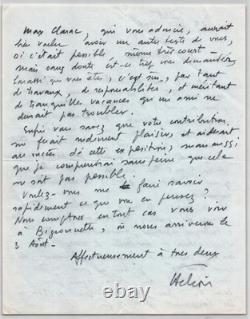 Max Clarac, qui vous admire, aurait
très voulu avoir un autre texte de vous,
si c'était possible même très court.
Mais sans doute est-ce trop vous demander,
qui vous êtes, c'est sûr, pas tant
de travaux, de responsabilités, et méritant
de tranquilles vacances que un ami ne
devrait pas troubler.
Enfin vous savez que votre contribution
me ferait rudement plaisir, et aiderait
au succès de cette exposition, mais aussi
que je comprendrai sans peine que cela
ne soit pas possible.
Voulez-vous me faire savoir
rapidement ce que vous en pensez?
Nous comptons en tout cas vous voir
à Bigeonnette, où nous arriverons le
3 Août.
Affectueusement à tous deux
Hélion